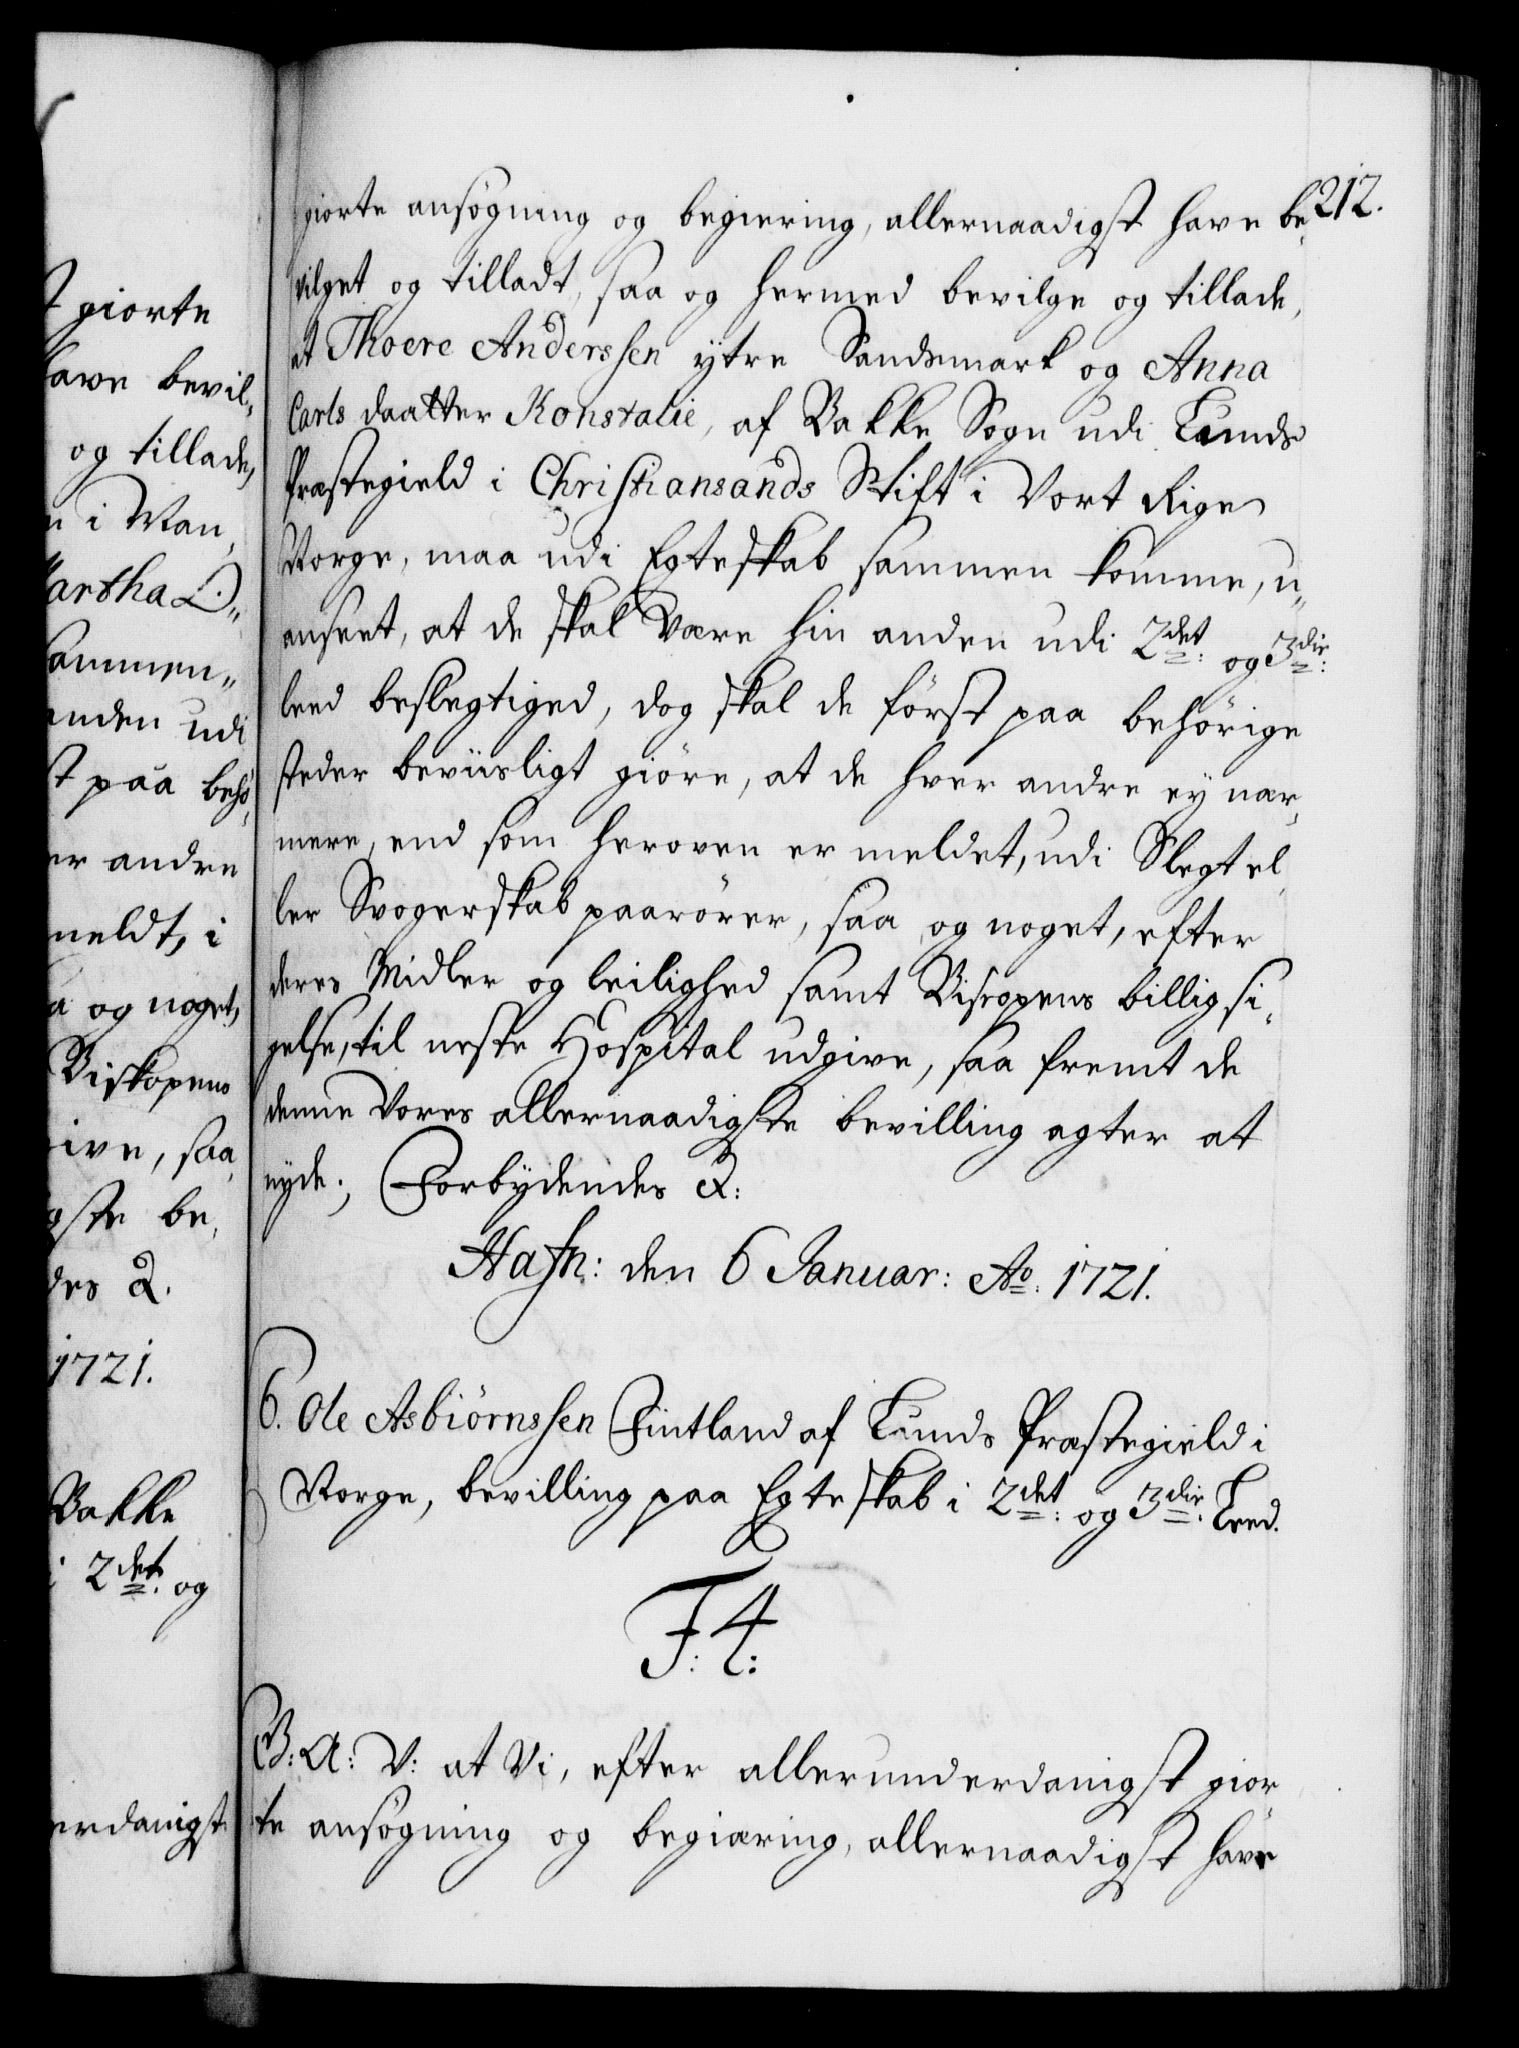 212.
giorte ansögning og begiering, allernaadigst have be,
vilget og tilladt, saa og hermed bevilge og tillade,
at Thoere Anderssen ÿtre Sandsmark og Anna
Carls daatter Konstalie, af Bakke Sogn udi Lunds
Præstegield i Christiansands Stift i Vort Rige
Norge, maa udi Egteskab sammen komme, u„
anseet, at de skal være hin anden udi 2det: og 3die:
leed beslegtiged, dog skal de först paa behörige
steder beviisligt giöre, at de hver andre eÿ nær,
mere, end som heroven er meldet, udi Slegt el,
ler Svogerskab paarörer, saa og noget, efter
deres Midler og leilighed samt Biscopens billig si,
gelse, til neste Hospital udgive, saa fremt de
denne Vores allernaadigste bevilling agter at
nÿde., Forbÿdendes &:
Hafn: den 6 Januar: Ao: 1721.
6. Ole Asbiörnssen Fintland af Lunds Præstegield i
Norge, bevilling paa Egteskab i 2det: og 3die: Leed.
F: 4:
G: A: V: at Vi, efter allerunderdanigst gior,
te ansögning og begiæring, allernaadigst have
t giorte
have bevil„
og tillade,
n i Man,
artha L„
sammen„
anden udi
st paa behö,
er andre
meldt, i
a og noget,
Biskopens
give, saa
gste be,
des &.
1721.
Bakke
i 2det: og
erdanigst